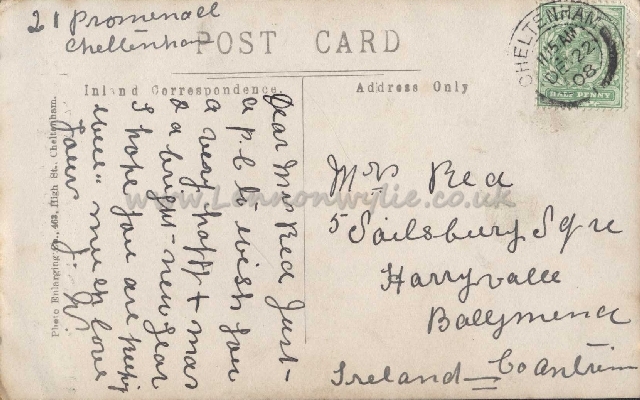 21 Promenade
Cheltenham
POST CARD
Inland Correspondence
Address Only
CHELTENHAM
11.15 AM
22
08
HALF PENNY
Dear Mrs Rea Just
a p.c to wish you
a very happy + mas
& a bright new year
I hope you are keeping
well much love
yours
Mrs Rea
5 Sailsbury Sqre
Harryville
Ballymena
Ireland Co Antrim
Photo Enlarging Co., 463, High St., Cheltenham.
www.Lennonwylie.co.uk